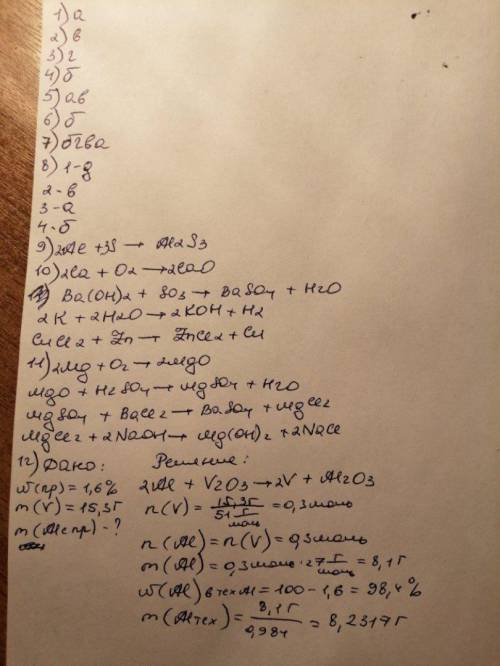 1) а
2) в
3) г
4) б
5) ав
6) б
7) бгва
8) 1-д
2-в
3-а
4-б
9) 2Al + 3S → Al2S3
10) 2Ca + O2 → 2CaO
Ba(OH)2 + SO3 → BaSO4 + H2O
2K + 2H2O → 2KOH + H2
CuCl2 + Zn → ZnCl2 + Cu
11) 2Mg + O2 → 2MgO
MgO + H2SO4 → MgSO4 + H2O
MgSO4 + BaCl2 → BaSO4 + MgCl2
MgCl2 + 2NaOH → Mg(OH)2 + 2NaCl
12) Дано: Решение:
w(пр) = 1,6% 2Al + V2O3 → 2V + Al2O3
m(V) = 15,3г n(V) = 15,3г / 51 г/моль = 0,3моль
m(Al с пр) - ?
n(Al) = n(V) = 0,3моль
m(Al) = 0,3моль · 27 г/моль = 8,1г
w(Al) в тех Al = 100 - 1,6 = 98,4%
m(Al тех) = 8,1г / 0,984 = 8,2317г